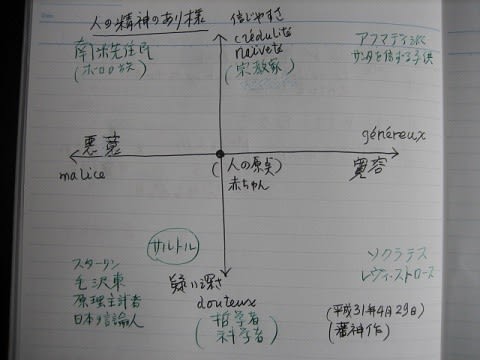 人の精神のあり様
信じやすさ
crédulité
naïveté
(宗教家)
南米先住民
(ボロロ族)
アフマディ派
サンタを信ずる子供
悪意
malice
généreux
寛容
(人の原点)
赤ちゃん
サルトル
スターリン
毛沢東
原理主計者
日本
言論人
疑い深さ
douteux
(哲学者
科学者)
ソクラテス
レヴィ・ストロース
(平成31年4月29日)